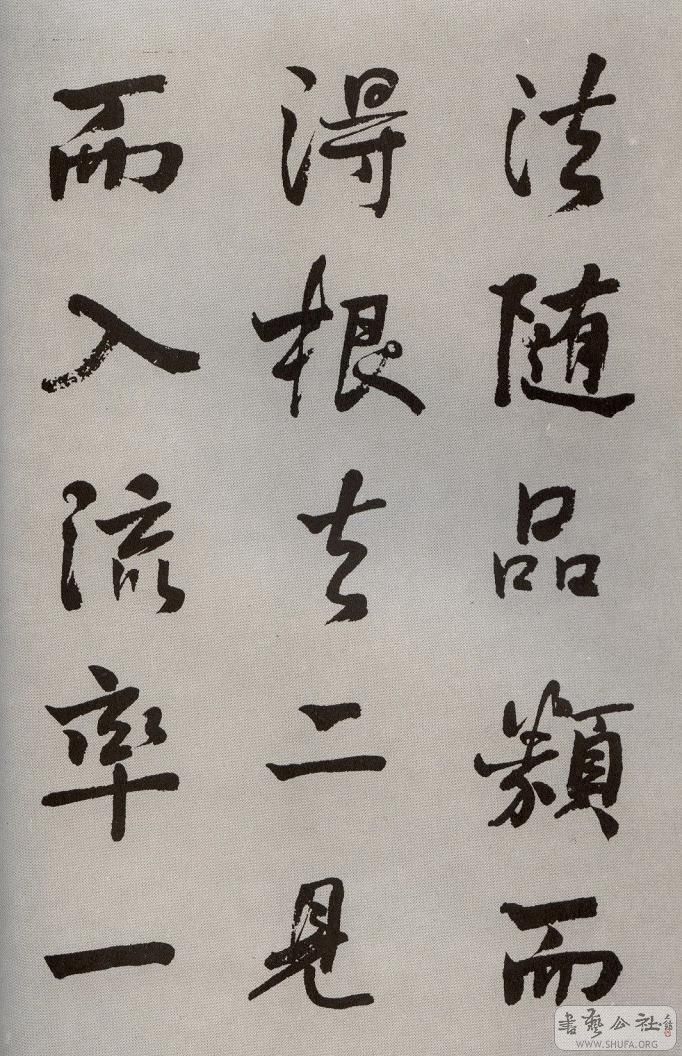 法随品類而
得根去二見
而入流率一
書藝公社
WWW.SHUFA.ORG